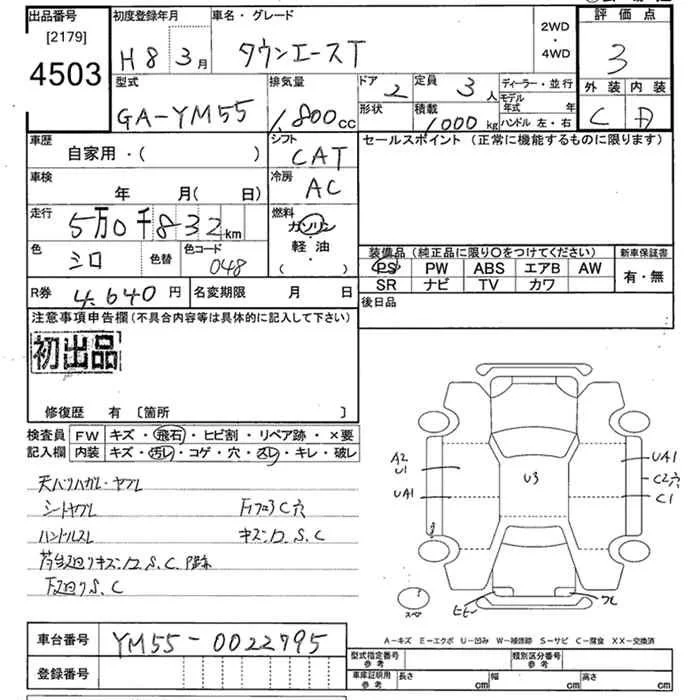 出品番号 初度登録年月 車名・グレード 2WD・4WD 評価点
[2179]
4503
H8 3月 タウンエースT 3
型式 排気量 ドア 定員 ディーラー・並行 外装 内装
GA-YM55 1,800cc 2 3人 モデル年式 年 C D
形状 積載 1000kg ハンドル 左・右
車歴 シフト セールスポイント (正常に機能するものに限ります)
自家用・( ) CAT
車検 冷房
年 月( 日) AC
走行 燃料
5万0千832km ガソリン
色 シロ 色替 色コード 048 軽油
・( )
装備品 (純正品に限り〇をつけてください) 新車保証書
PS PW ABS エアB AW 有・無
SR ナビ TV カワ
R券 4,640円 名変期限 月 日 後日品
注意事項申告欄(不具合内容等は具体的に記入して下さい)
初出品
修復歴 有 [箇所 ]
検査員 FW キズ・飛石・ヒビ割・リペア跡・×要
記入欄 内装 キズ・汚レ・コゲ・穴・スレ・キレ・破レ
天バリハガレ・ヤブレ
シートヤブレ
ハンドルスレ
下廻りS.C
A2
U1
UA1
U3
UA1
C2穴
C1
A-キズ E-エクボ U-凹み W-補修跡 S-サビ C-腐食 XX-交換済
車台番号 YM55-0022795
登録番号
型式指定番号 参考 類別区分番号 参考
車庫証明用 参考 長さ cm 幅 cm 高さ cm